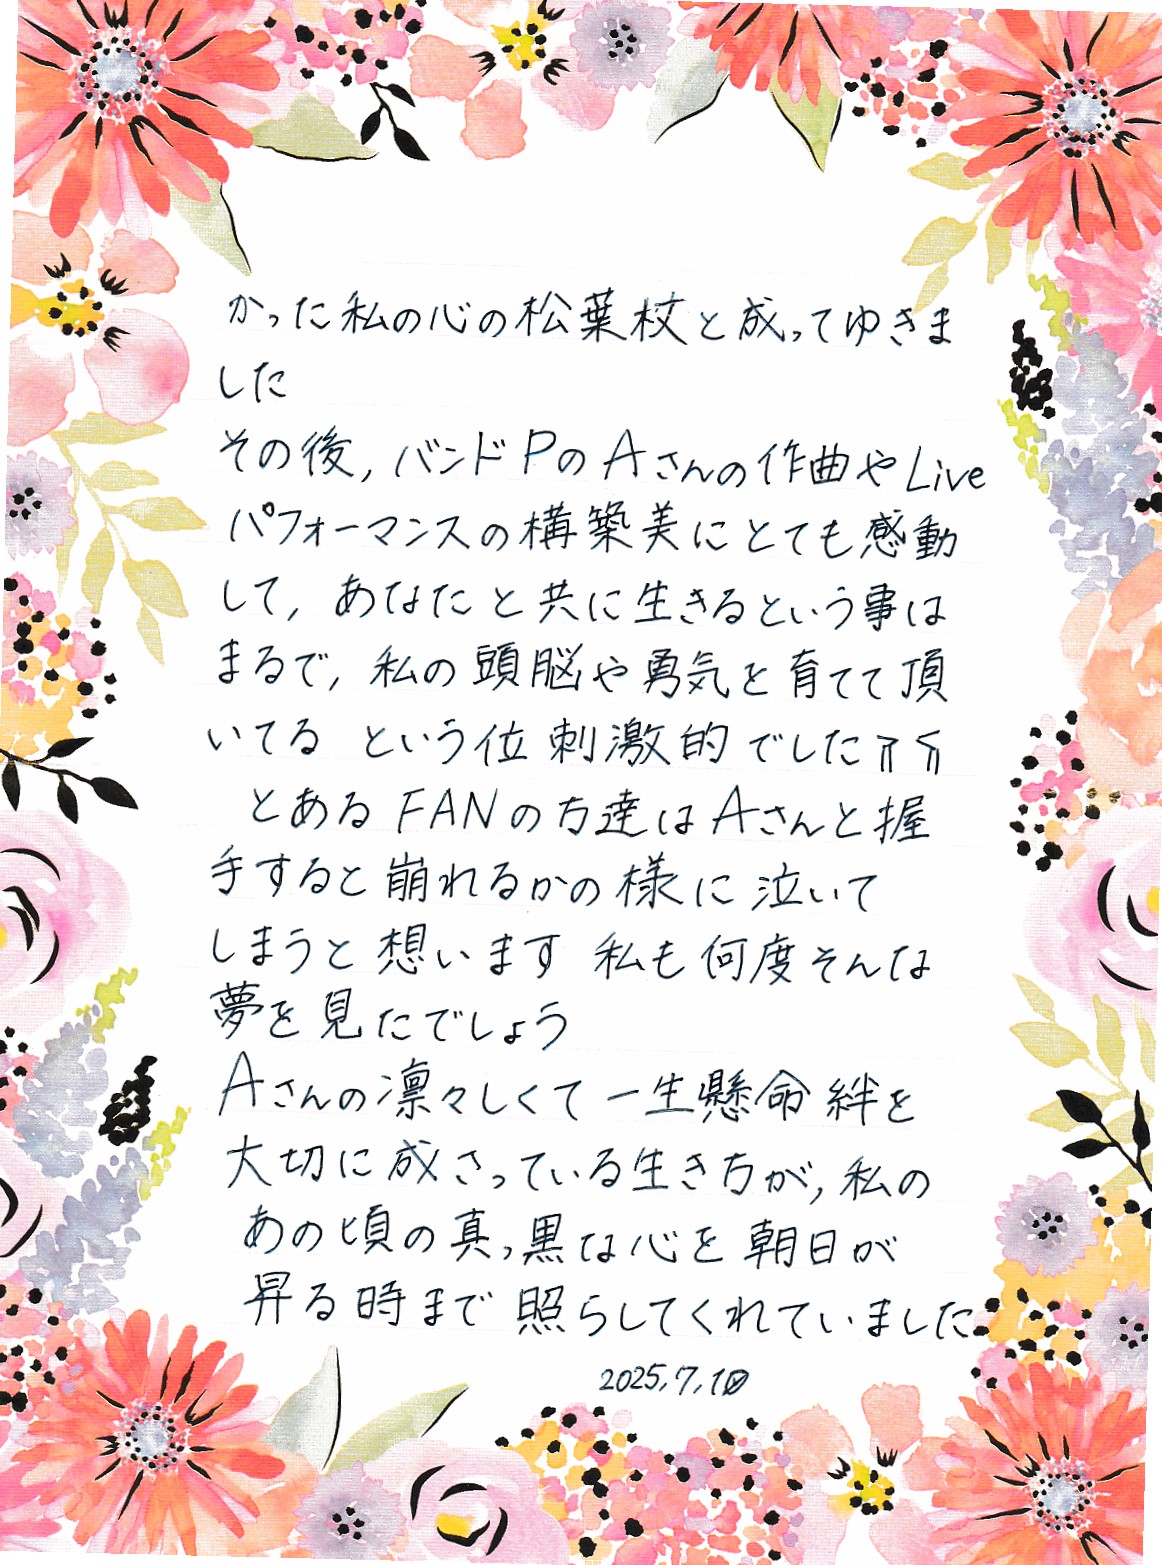 かった私の心の松葉杖と成ってゆきま
した
その後, バンドPのAさんの作曲やLive
パフォーマンスの構築美にとても感動
して, あなたと共に生きるという事は
まるで, 私の頭脳や勇気を育てて頂
いてる という位 刺激的でした
とあるFANの方達はAさんと握
手すると崩れるかの様に泣いて
しまうと想います 私も何度そんな
夢を見たでしょう
Aさんの凛々しくて一生懸命絆を
大切に成さっている生き方が, 私の
あの頃の真っ黒な心を朝日が
昇る時まで照らしてくれていました
2025.7.10